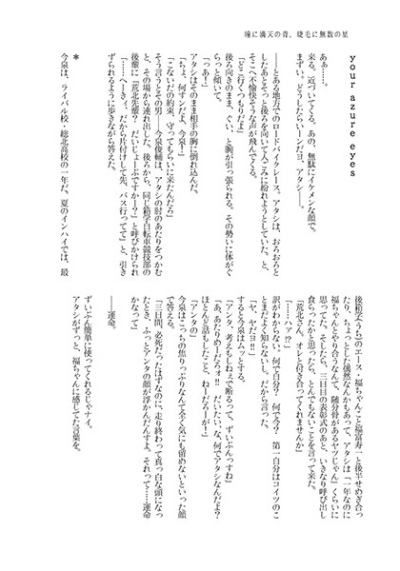 瞳に満天の青、睫毛に無数の星
your azure eyes
あぁ……。
来る。近づいてくる。あの、無駄にイケメンな顔で。
まずい。どうしたらいーンだヨ、アタシ――。
――とある地方でのロードバイクレース。アタシは、おろおろと
したあとそっと後ろを向いて人ごみに紛れようとしていた。と、
そこへ不愉快そうな声が飛んでくる。
「どこ行くつもりだよ」
後ろ向きのまま、ぐい、と腕が引っ張られる。その勢いに体がぐ
らっと傾いて。
「っあ！」
アタシはそのまま相手の胸に倒れ込んだ。
「ちょ、何すンだよ、今泉！」
「こないだの約束、守ってもらいに来たんだろ」
そう言うとその男――今泉俊輔は、アタシの肘のあたりをつかむ
と、その場から連れ出した。後ろから、同じ箱学自転車競技部の
後輩に「荒北先輩？　だいじょーぶですかー？」と呼びかけられ
「……へーきィ。だから片付けして先、バス行ってて」と、引き
ずられるように歩きながら答えた。
＊
今泉は、ライバル校・総北高校の一年だ。夏のインハイでは、最
後箱学（うち）のエース・福ちゃんこと福富寿一と後半せめぎ合っ
たり、ちょっとした偶然なんかもあって、アタシは「一年なのに
福ちゃんとやり合うなんて、随分骨があるヤツじゃん」くらいに
思ってた。そしたら、三日目の表彰式のあと、いきなり呼び出し
食らったかと思ったら、とんでもないことを言って来た。
「荒北さん。オレと付き合ってくれませんか」
「……ハァ!?」
訳がわからない。何で自分？　何で今？　第一自分はコイツのこ
とまだよく知らないし。だから言った。
「ヤ、ヤだヨォ」
すると今泉はムッとする。
「アンタ、考えもしねぇで断るって、ずいぶんっすね」
「あ、あたりめーだろォ!!　だいたい、な、何でアタシなんだよ？
ほとんど話もしたこと、ねーだろーが！」
今泉はこっちの焦りっぷりなんて全く気にも留めないといった顔
で答える。
「アンタの」
「三日間、必死だったはずなのに、走り終わって真っ白な頭になっ
たとき、ふっとアンタの顔が浮かんだんすよ。それって……運命
かなって」
――運命。
ずいぶん簡単に使ってくれるじゃナイ。
アタシがずっと、福ちゃんに感じてた言葉を。